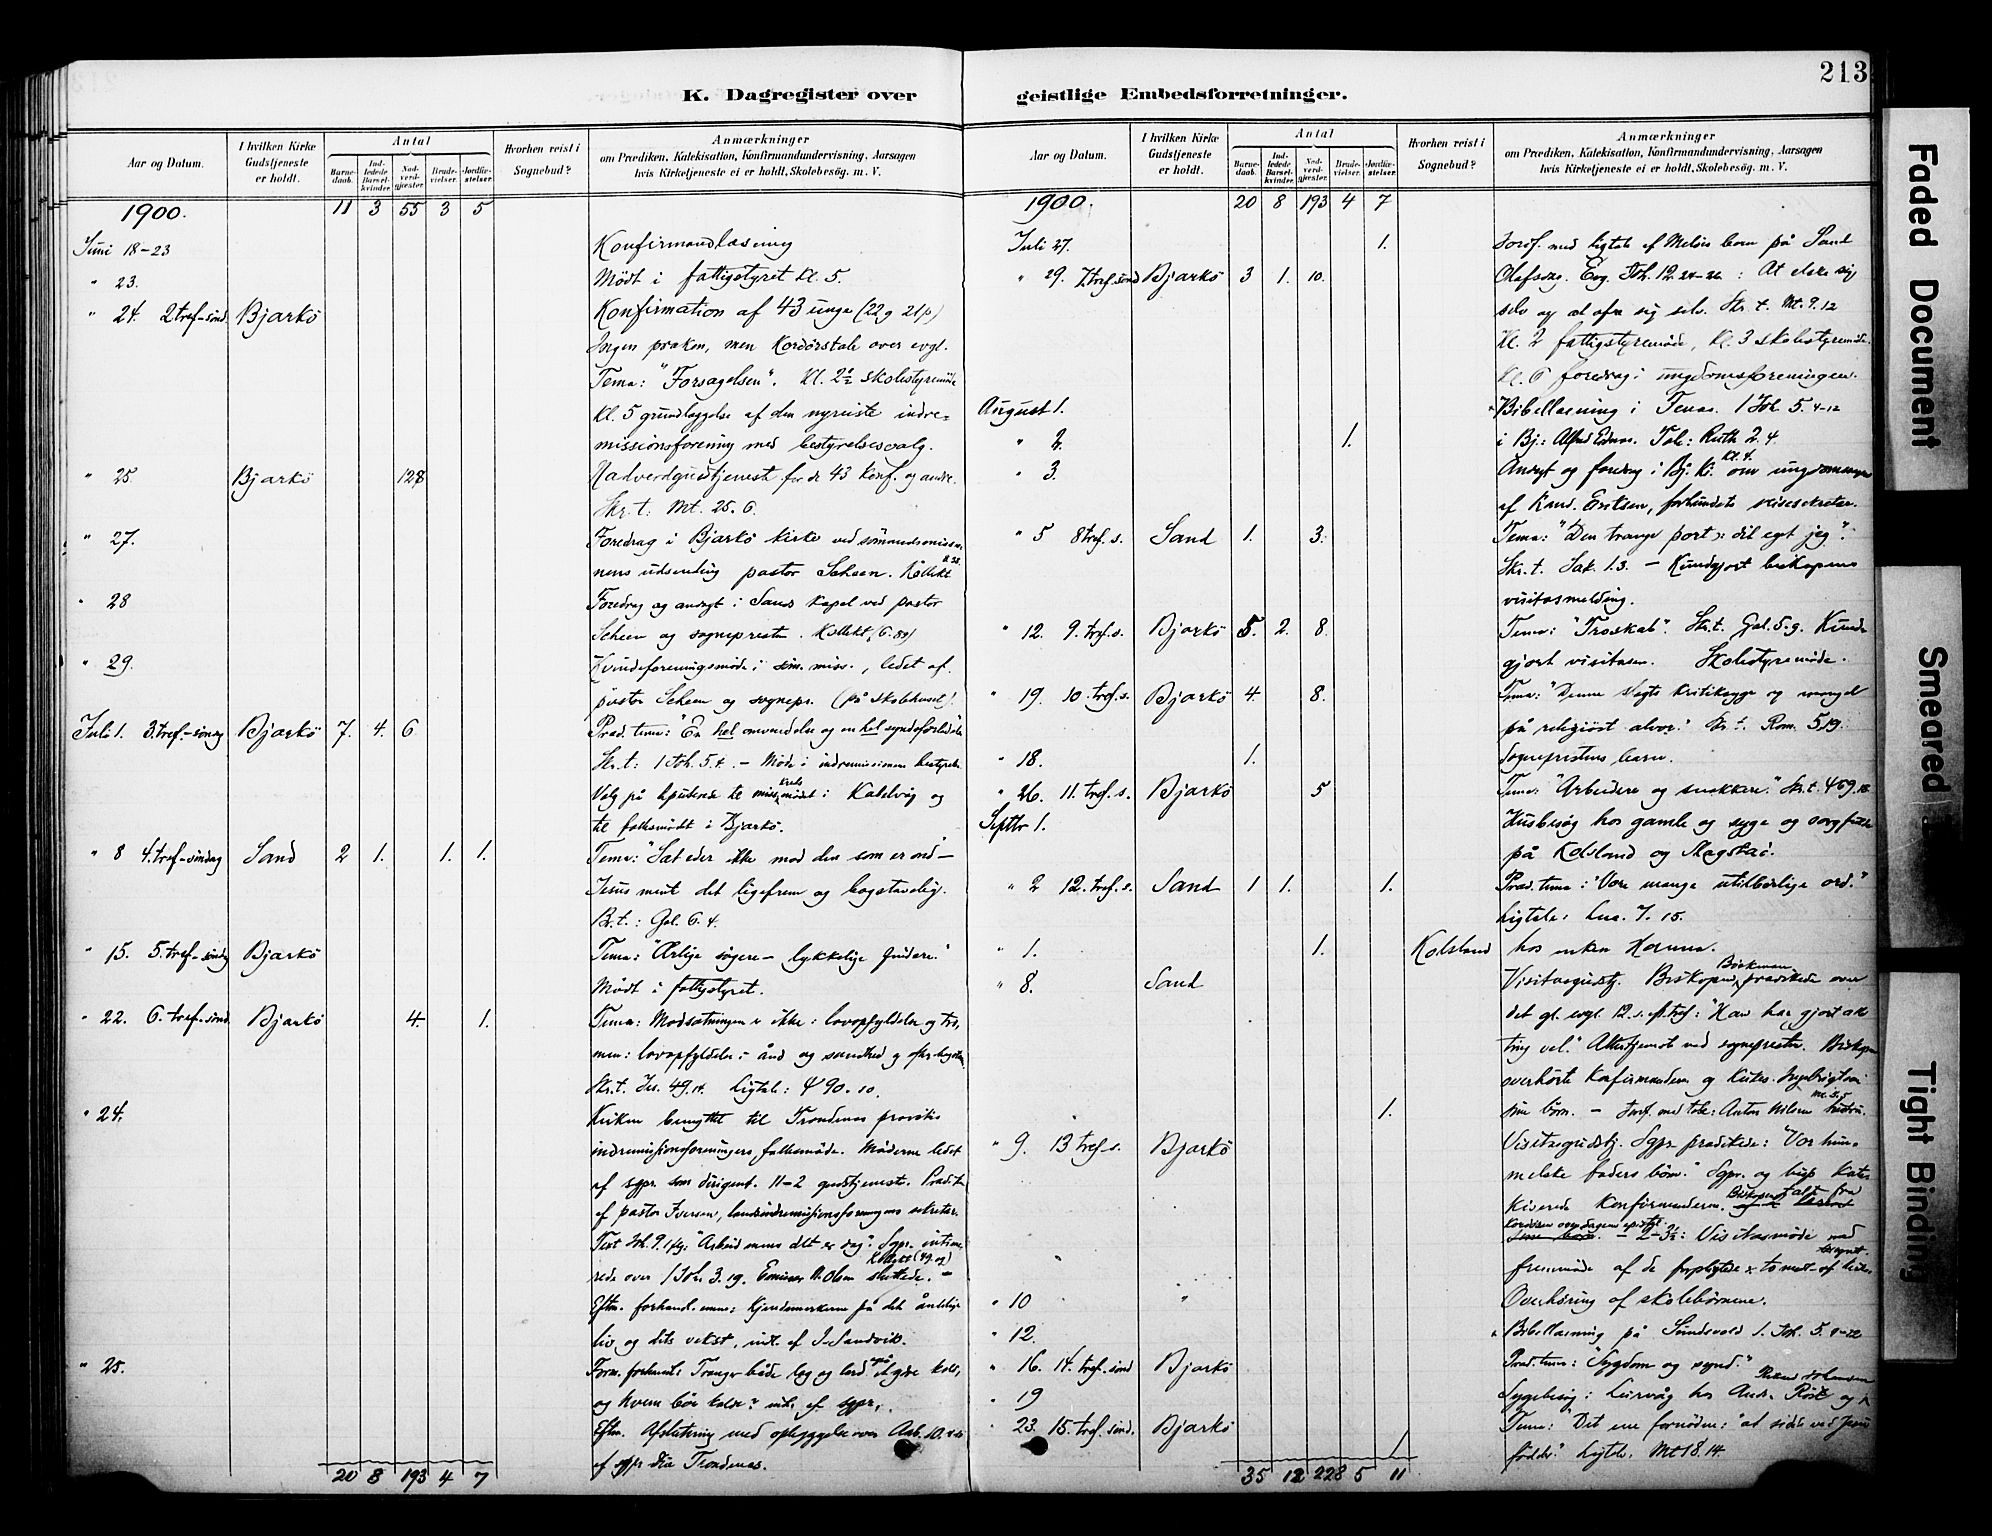 213
K. Dagregister over geistlige Embedsforretninger.
Aar og Datum.
I hvilken Kirke Gudstjeneste er holdt.
Antal
Barne-daab.
Ind-ledede Barsel-kvinder.
Nad-verd-gjester.
Brude-vielser.
Jordfæ-stelser.
Hvorhen reist i Sognebud?
Anmærkninger
om Prædiken, Katekisation, Konfirmandundervisning, Aarsagen
hvis Kirketjeneste ei er holdt, Skolebesög. m. V.
1900. 11 3 55 3 5
Juni 18-23 Konfirmandlæsning
" 23. Mødt i fattigstyret kl. 5.
" 24. 2 tref-sönd. Bjarkö Konfirmation af 43 unge (22 g 21 p)
Ingen præken, men Kordörstale over evgl.
Tema: "Forsagelsen". Kl. 2½ skolestyremöde
Kl. 5 grundlæggelse af den nyreiste indre-
missionsforening med bestyrelsesvalg.
" 25. Bjarkö 128 Nadverdgudstjenest for de 43 Konf. og andre.
Skr. t: Mt. 25. 6.
" 27. Foredrag i Bjarkö kirke ved sömandsmissio-
nens udsending pastor Scheen. Kollekt
" 28 Foredrag og andagt i Sands Kapel ved pastor
Scheen og sognepresten. Kollekt (6.89)
" 29. Kvindeforeningsmöde i söm. miss., ledet af
pastor Scheen og sognepr. (på skolehuset).
Juli 1. 3. tref.-söndag Bjarkö 7. 4. 6 Præd. tema: "En hel omvendelse og en hel syndsforladelse"
Skr. t: 1 Joh. 5.4. - Möde i indremissionens bestyrelse
Valg på utsending til miss. kredsmödet i Kabelvåg og
til folkemödet i Bjarkö.
" 8 4. tref-söndag Sand 2 1. 1. 1. Tema: "Sæt eder ikke mod den som er ond -
Jesus ment det ligefrem og bogstavelig.
B.t.: Gal. 6. 4.
" 15. 5. tref-söndag Bjarkö Tema: "Ærlige sögere - lykkelige findere."
Mødt i fattigstyret.
" 22. 6. tref-sönd. Bjarkö 4. 1. Tema: Modsætningen er ikke: lovopfyldelse og tro,
men: lovopfyldelse i ånd og sandhed og efter bogstaven
Skr. t. Jes. 49.14. Ligtale: Ψ 90. 10.
" 24. Kirken benyttet til Trondenæs provstis
indremissionsforeningers folkemöde. Möderne ledet
af sgpr. som dirigent. 11-2 gudstjeneste. Prædik.
af pastor Iversen, landsindremissionsforeningens sekretær.
Text Joh. 9. 1 flg: "Arbeid mens det er dag". Sgpr. intime-
rede over 1 Joh. 3. 19. Emissær A. Olsen sluttede. -
Eftm. forhandl. emne: Kjendemerkerne på det åndelige
liv og dets vekst, indl. af J. Sandvik.
" 25. Form. forhandl. Trænger både læg og lærd også et ydre kald,
og hvem bör kalde? indl. af sgpr.
Eftm. Afslutning med opbyggelse over Aab. 10.
af sgpr. fra Trondenæs.
20 8 193 4 7
Aar og Datum.
I hvilken Kirke Gudstjeneste er holdt.
Antal
Barne-daab.
Ind-ledede Barsel-kvinder.
Nad-verd-gjester.
Brude-vielser.
Jordfæ-stelser.
Hvorhen reist i Sognebud?
Anmærkninger
om Prædiken, Katekisation, Konfirmandundervisning, Aarsagen
hvis Kirketjeneste ei er holdt, Skolebesög. m. V.
1900. 20 8 193 4 7
Juli 27. 1. Jordf. med ligtale af barn på Sand
" 29. 7. tref-sönd Bjarkö 3 1. 10. Olafsok. Evg. Joh. 12. 24-26: At elske sig
selv og at ofre sig selv. Skr. t. Mt. 9. 12
Kl. 2 fattigstyremöde, Kl. 3 skolestyremöde.
Kl. 6 foredrag i ungdomsforeningen.
August 1. Bibellæsning i 1 Joh. 5. 4-12
" 2. 1. i Bj.: Tale: Ruth 2. 4
" 3. Andagt og foredrag i Bj. K. kl. 4. om ungdomssagen
af Kand. Eriksen, forbundets reisesekretær.
" 5 8 tref. s. Sand 1. 3. Tema: "Den trange port: dit eget jeg".
Skr. t. Sak. 1.3. - Kundgjort biskopens
visitasmelding.
" 12. 9. tref. s. Bjarkö 5. 2. 8. Tema: "Troskab". Skr. t. Gal. 5. 9. Kund-
gjort visitasen. Skolestyremöde.
" 19. 10. tref. s. Bjarkö 4. 8. Tema: "Denne slegts kritiksyge og mangel
på religiöst alvor." Skr. t. Rom. 5. 19.
" 18. 1. Sogneprestens barn.
" 26. 11. tref. s. Bjarkö 5 Tema: "Arbeidere og snakkere." Skr. t.
Septbr 1. Husbesög hos gamle og syge og sorgfulde
på Kolsland og
" 2 12. tref. s. Sand 1 1. 1. Præd. tema: "Vore mange utilbörlige ord."
Ligtale: Luc. 7. 15.
" 1. 1. Kolsland hos enken Hanna.
" 8. Sand Visitasgudstj. Biskopen Böckman prædikede over
det gl. evgl. 12. s. e. tref: "Han har gjort alle
ting vel." Altertjenest ved sognepresten. Biskopen
overhörte Konfirmanderne og
sine börn. - 1. Jordf. med tale: Anton Nilsen
" 9. 13 tref-s. Bjarkö Visitasgudstj. Sgpr. prædikede: "Vor him-
melske faders börn." Sgpr. og bisp kate-
kiserede Konfirmanderne. Biskopens tale fra
kordören over dagens epistel - 2-3½: Visitasmöde med
fremmöde af de forpligtede
" 10 " Overhöring af skolebörnene.
" 12. Bibellæsning på Sundsvold 1. Joh. 5.
" 16. 14. tref. sönd Bjarkö Præd. tema: "Sygdom og synd."
" 19 Sygebesög i Leirvåg hos
" 23. 15. tref. sönd. Bjarkö 1 Tema: "Det ene fornödne: at sidde ved Jesu
födder." Ligtale. Mt 18. 14.
35 12 228 5 11
Faded Document
Smeared
Tight Binding